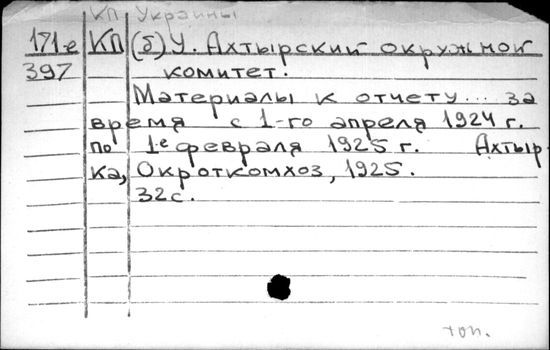 КП Украины
171-е КП(б)У. Ахтырский окружной
397 комитет.
Материалы к отчету... за
время с 1-го апреля 1924 г.
по 1е февраля 1925 г. Ахтыр-
ка, Окроткомхоз, 1925.
32 с.
топ.